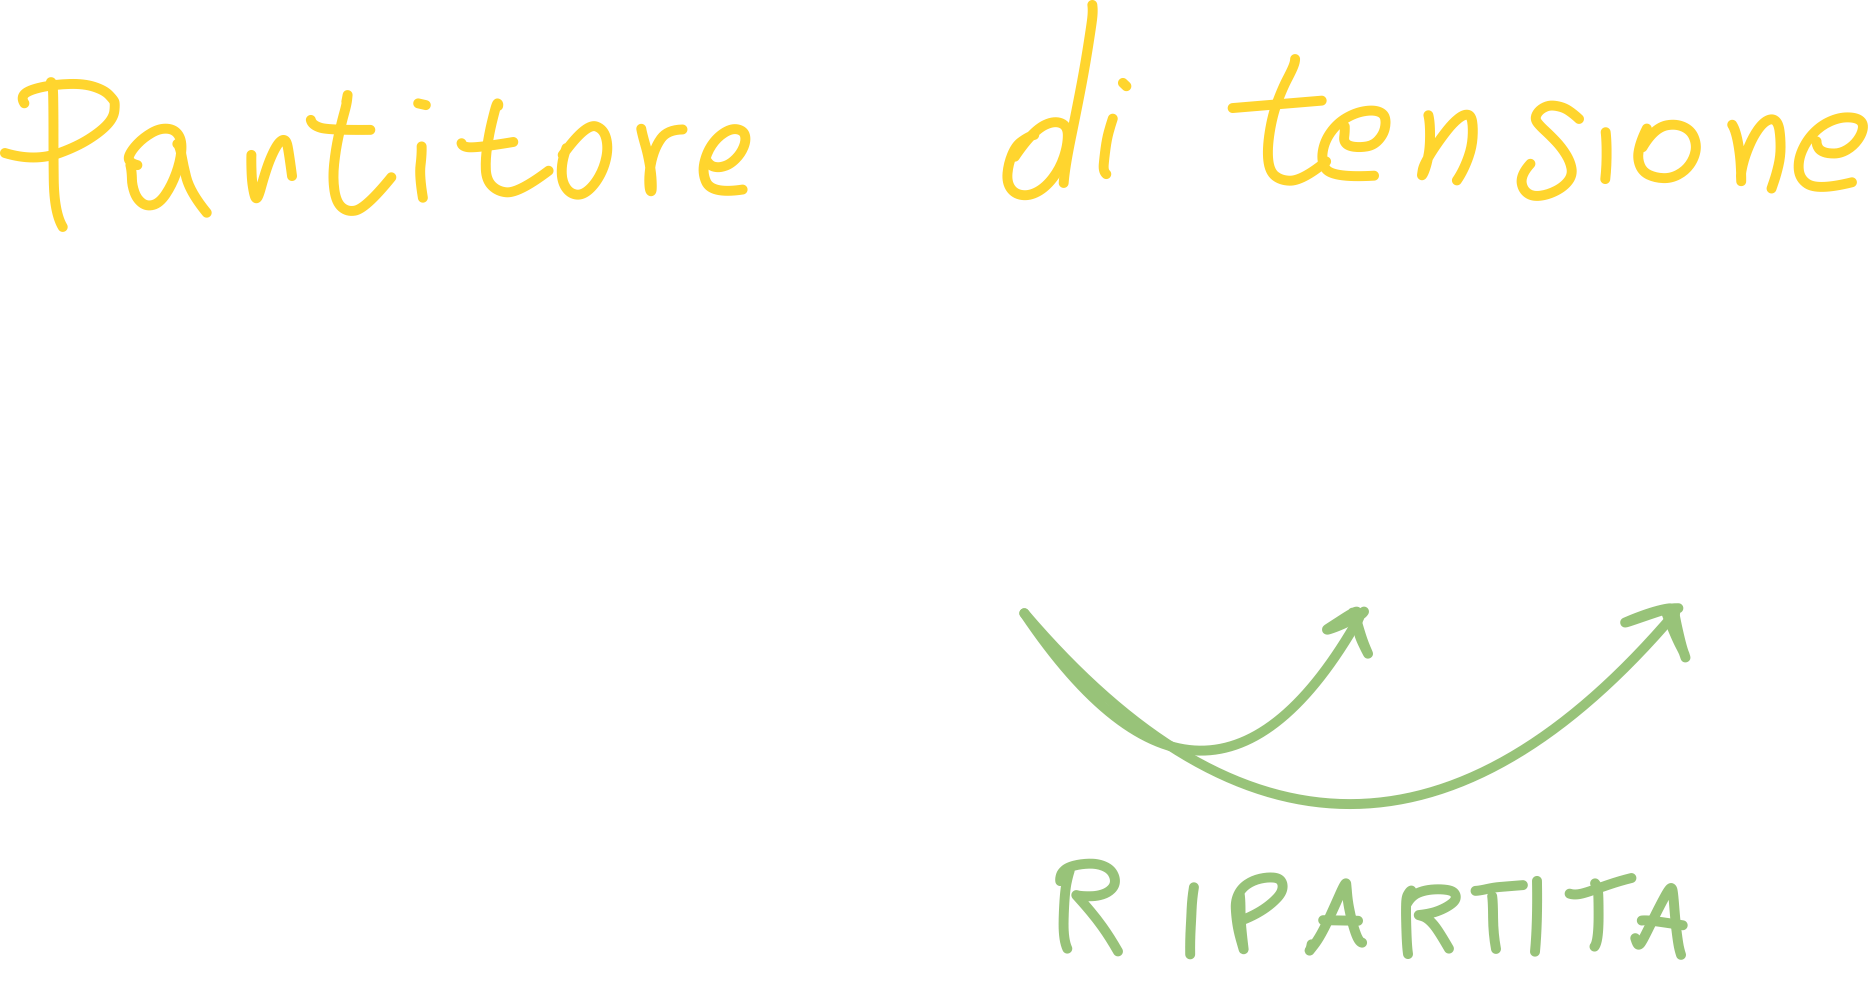 Partitore di tensione
RIPARTITA